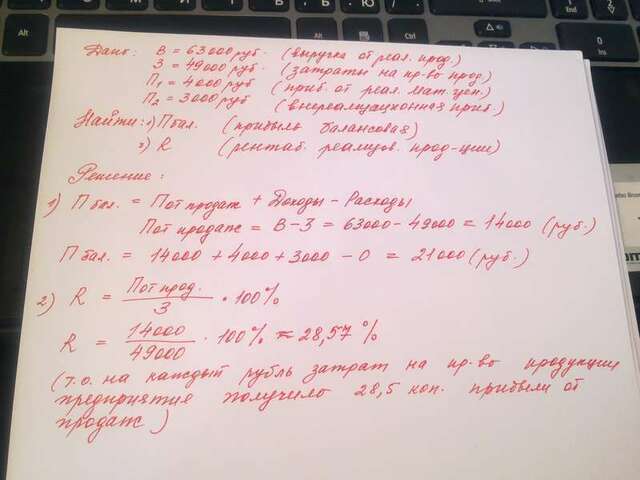 Дано: В = 63000 руб. (выручка от реал. прод.)
З = 49000 руб. (затраты на пр-во прод)
П1 = 4000 руб (приб. от реал. мат. цен.)
П2 = 3000 руб (внереализационная приб.)
Найти: 1) П бал. (прибыль балансовая)
2) R (рентаб. реализов. прод-ции)
Решение:
1) П бал. = П от продаж + Доходы - Расходы
П от продаж = В - З = 63000 - 49000 = 14000 (руб.)
П бал. = 14000 + 4000 + 3000 - 0 = 21000 (руб.)
2) R = П от прод. / З · 100%
R = 14000 / 49000 · 100% ≈ 28,57 %
(т.о. на каждый рубль затрат на пр-во продукции
предприятие получило 28,5 коп. прибыли от
продаж)
Alt
Alt
Ctrl
Ins